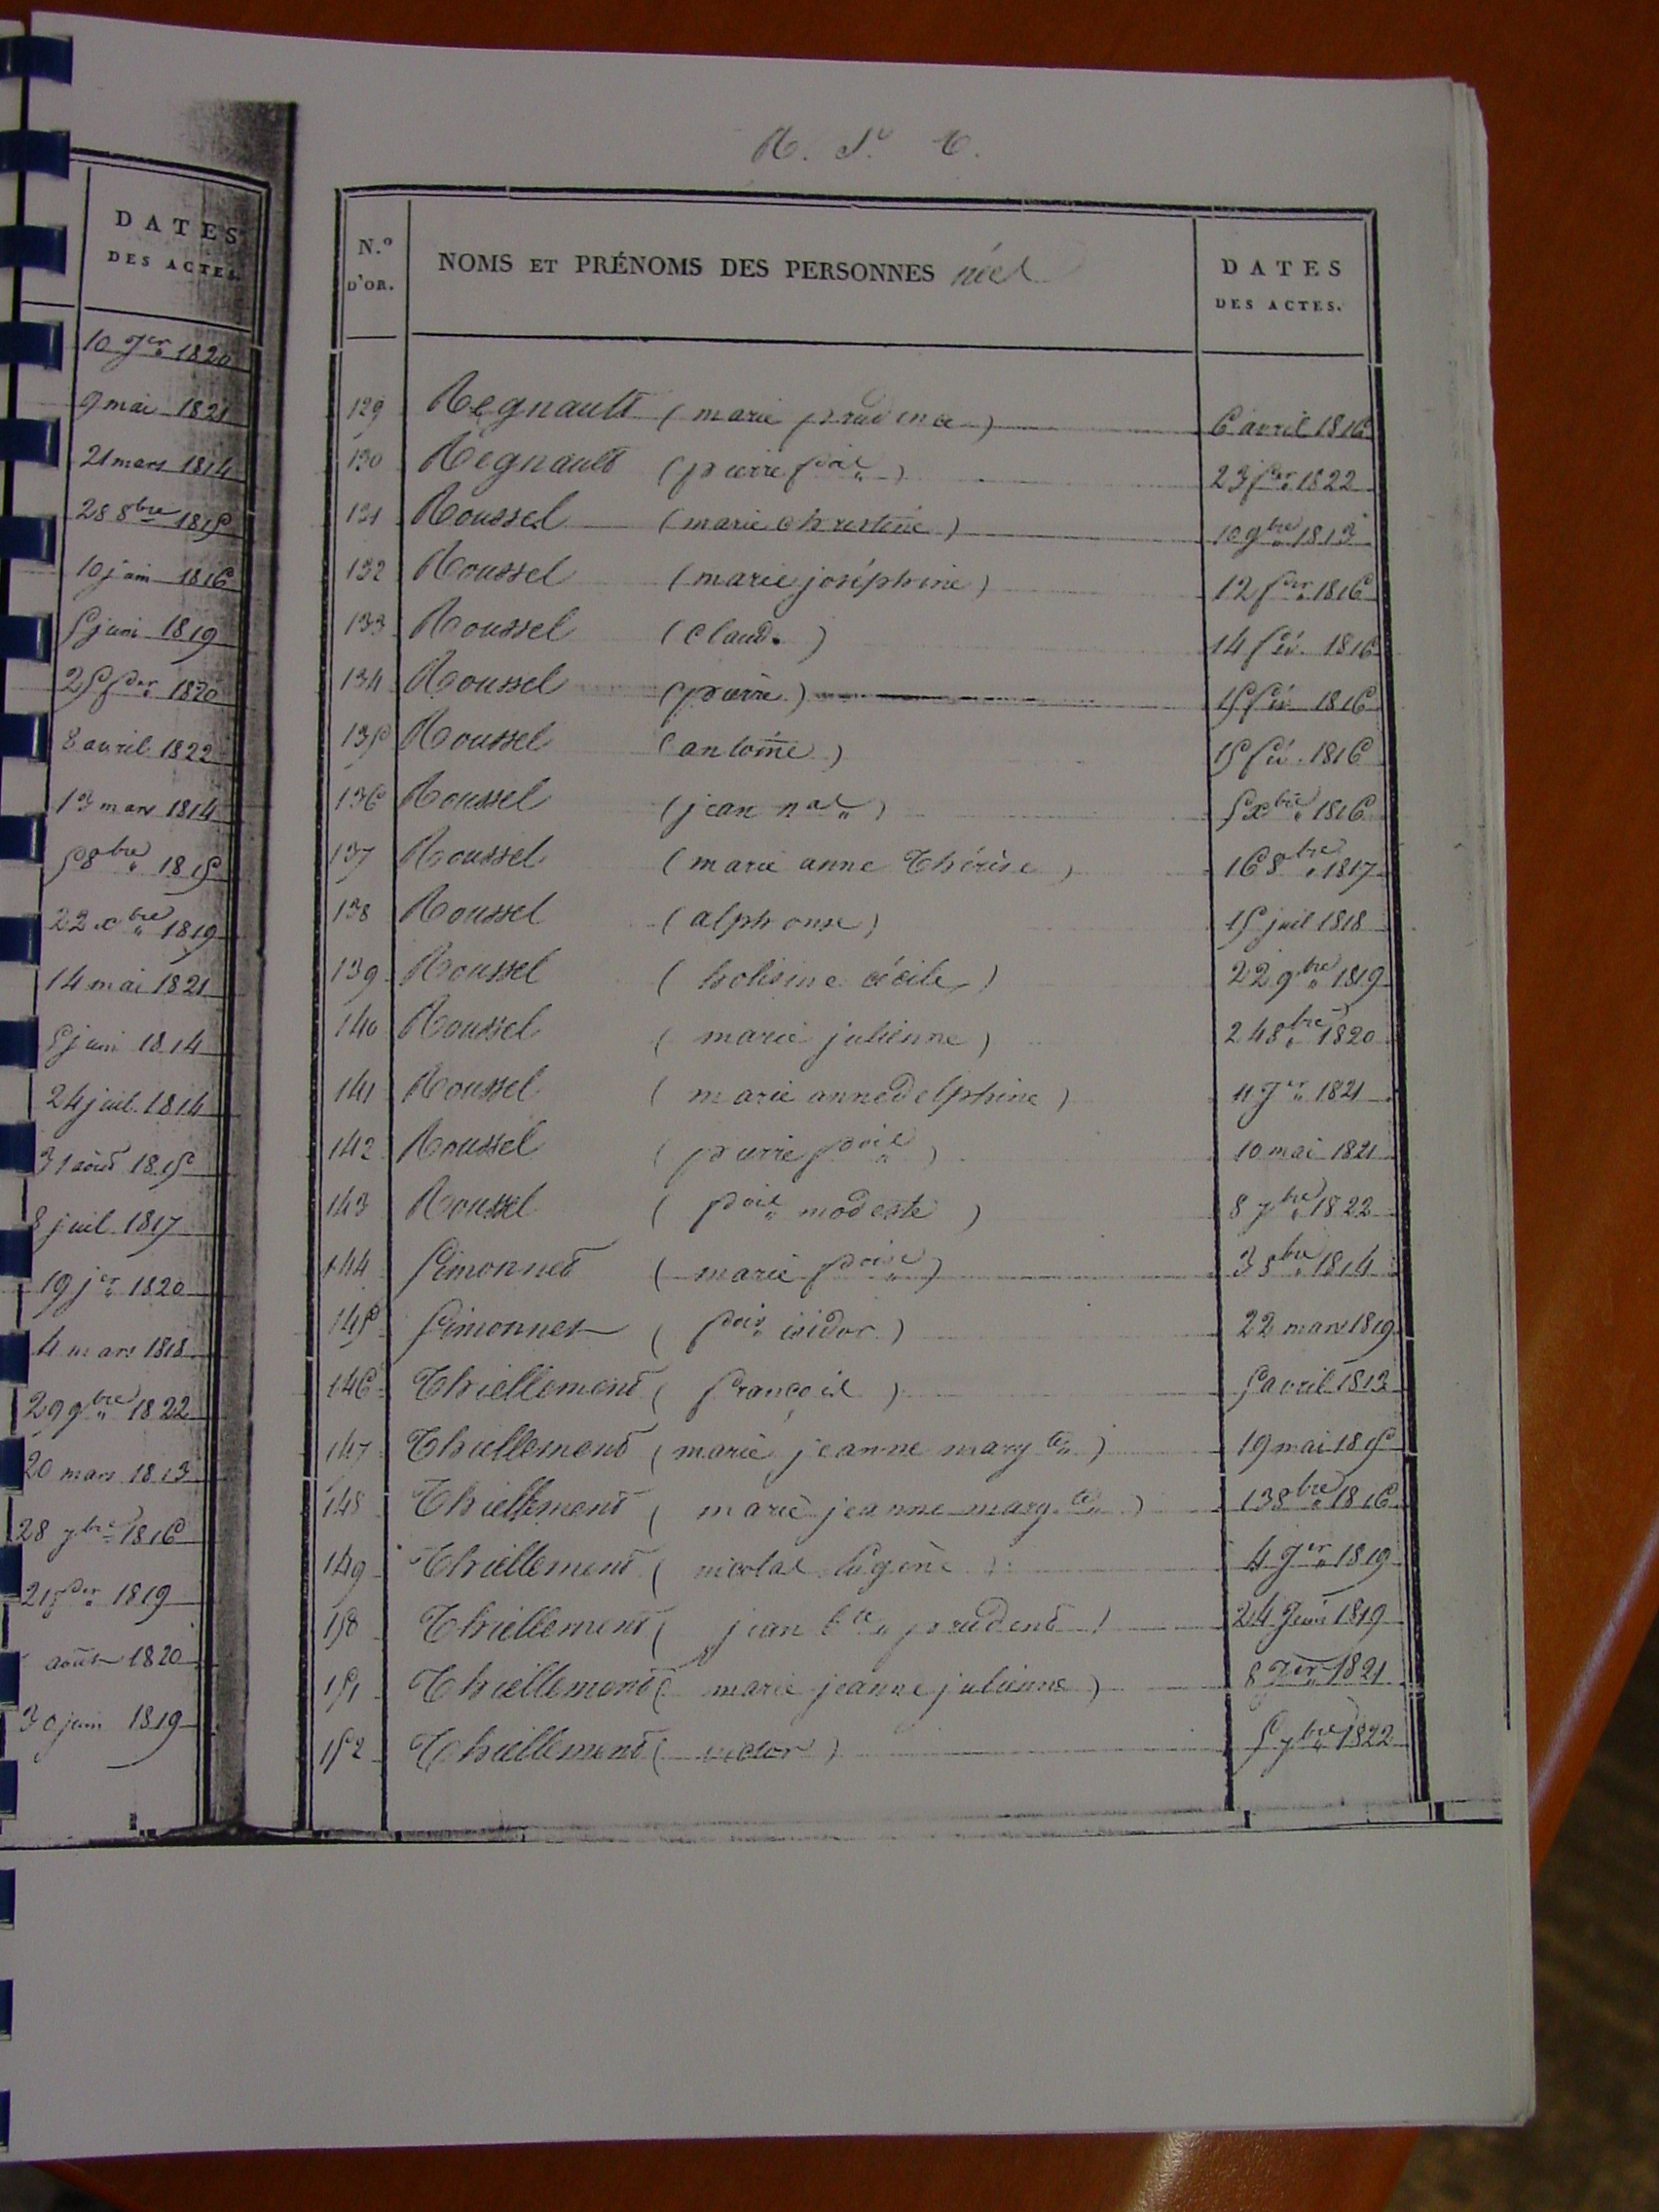 DATES
DES ACTES
10 Jer 1820
9 mai 1821
21 mars 1814
28 8bre 1815
10 juin 1816
5 juin 1819
25 fder 1820
8 avril 1822
13 mars 1814
5 8bre 1815
22 xbre 1819
14 mai 1821
5 juin 1814
24 juil. 1814
31 août 1815
8 juil. 1817
19 jer 1820
4 mars 1818
29 9bre 1822
20 mars 1813
28 7bre 1816
1819
août 1820
30 juin 1819
R. S. T.
N.º D'OR.
NOMS ET PRÉNOMS DES PERSONNES nées
DATES DES ACTES.
129 Regnault (marie prudence) 6 avril 1816
130 Regnault (pierre fois) 23 fder 1822
131 Roussel (marie christine) 10 9bre 1813
132 Roussel (marie joséphine) 12 fder 1816
133 Roussel (claud.) 14 fév. 1816
134 Roussel (pierre) 15 fév 1816
135 Roussel (antoine) 15 fév. 1816
136 Roussel (jean nas) 5 xbre 1816
137 Roussel (marie anne Thérèse) 16 8bre 1817
138 Roussel (alphonse) 15 juil 1818
139 Roussel ( cécile) 22 9bre 1819
140 Roussel (marie julienne) 24 8bre 1820
141 Roussel (marie anne delphine) 11 Jer 1821
142 Roussel (pierre fois) 10 mai 1821
143 Roussel (fois modeste) 8 7bre 1822
144 Simonnet (marie foise) 3 8bre 1814
145 Simonnet (fois isidor) 22 mars 1819
146 Thiellement (françois) 5 avril 1813
147 Thiellement (marie jeanne marg te) 19 mai 1815
148 Thiellement (marie jeanne marg. te) 13 8bre 1816
149 Thiellement (nicolas Eugène) 4 Jer 1819
150 Thiellement (jean bte prudent) 24 Juin 1819
151 Thiellement (marie jeanne julienne) 8 Jer 1821
152 Thiellement (victor) 5 7bre 1822